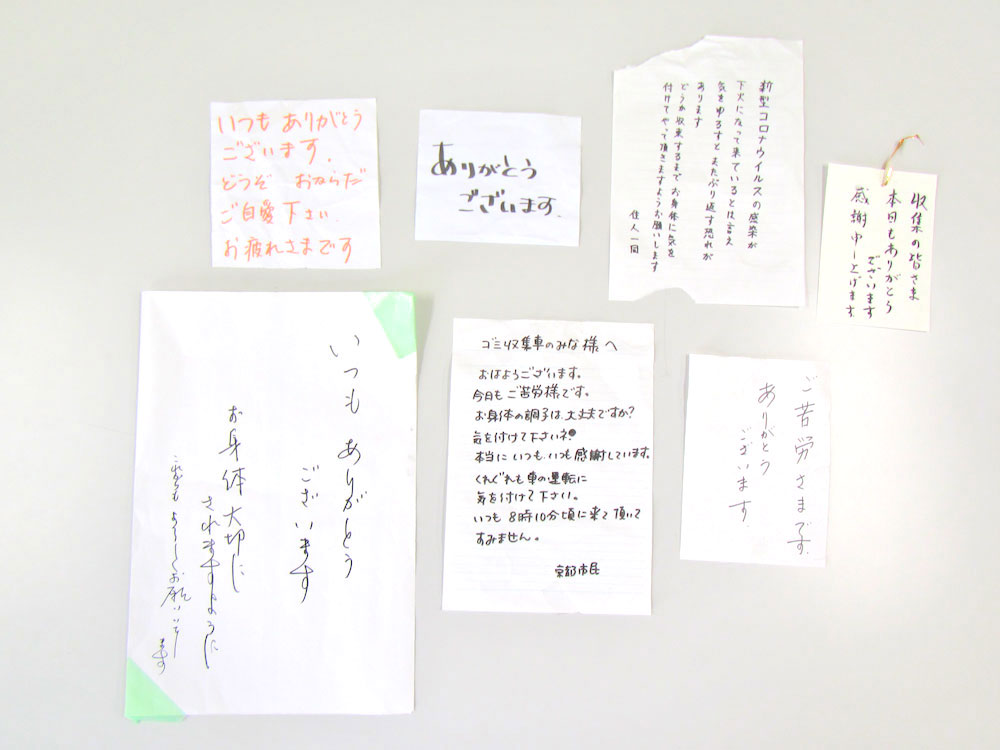 いつも ありがとう
ございます.
どうぞ おからだ
ご自愛下さい.
お疲れさまです
ありがとう
ございます.
新型コロナウイルスの感染が
下火になって来ているとは言え
気をゆるすと またぶり返す恐れが
あります
どうか収束するまでお身体に気を
付けてやって頂きますようお願いします
住人一同
収集の皆さま
本日もありがとう
ございます
感謝申し上げます
いつも ありがとう
ございます
お身体大切に
されますように
これからも よろしくお願いいたし
ます
ゴミ収集車のみな様へ
おはようございます。
今日もご苦労様です。
お身体の調子は大丈夫ですか?
気を付けて下さいネ。
本当にいつも、いつも感謝しています。
くれぐれも車の運転に
気を付けて下さい。
いつも8時10分頃に来て頂いて
すみません。
京都市民
ご苦労さまです.
ありがとう
ございます